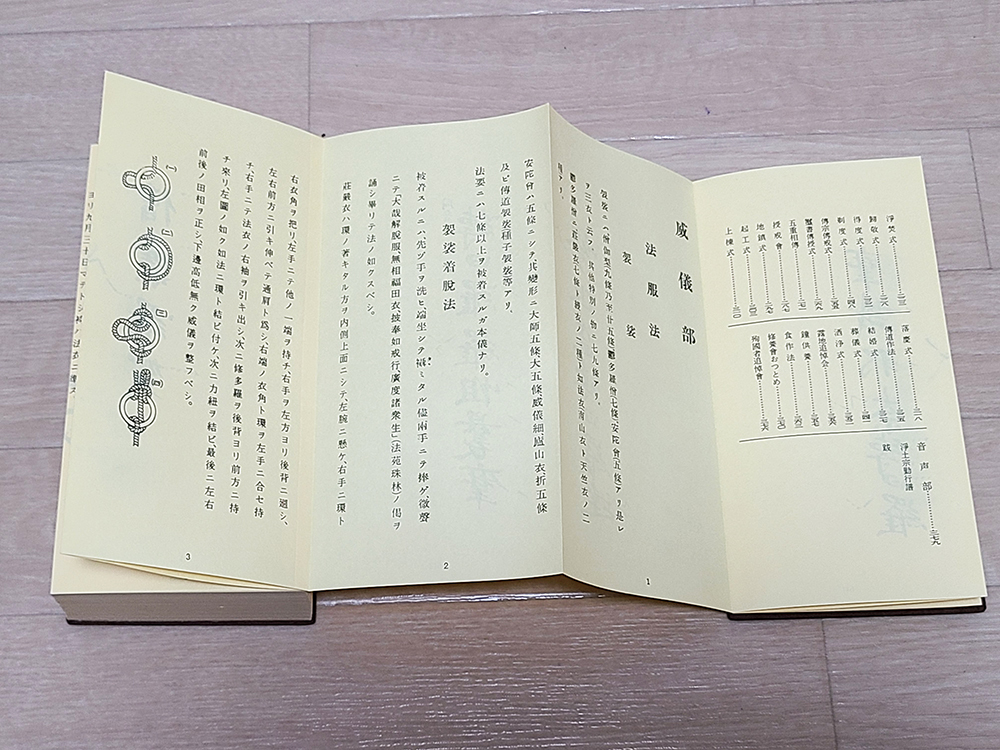 淨焚式
歸敬式
得度式
剃度式
傳宗傳戒式
璽書傳授式
五重相傳
授戒會
地鎭式
起工式
上棟式
落慶式
傳道作法
結婚式
葬儀式
洒淨式
露地追悼会
鐘供養
食作法
修養會おつとめ
殉國者追悼會
音声部
淨土宗勤行譜
跋
威儀部
法服法
袈裟
袈裟ニ(僧伽梨九條乃至廿五條)(欝多羅僧七條)(安陀會五條)アリ是レ
ヲ三衣ト云フ。其他特別ノ如ニ七九條アリ。
欝多羅僧ニ(莊嚴衣七條ト縁衣ノ二種)ト如法衣(南山衣ト天竺衣ノ二
種)アリ。
安陀會ハ五條ニシテ其變形ニ大師五條大五條威儀細廬山衣折五條
及ビ傳道袈裟種子袈裟等アリ。
法要ニハ七條以上ヲ被着スルガ本儀ナリ。
袈裟着脱法
被着スルニハ、先ヅ手ヲ洗ヒ端坐シテ、襵ミタル儘兩手ニテ捧ゲ、微聲
ニテ「大哉解脱服無相福田衣、披奉如戒行、廣度諸衆生」(法苑珠林)ノ偈ヲ
誦シ畢リテ法ノ如クスベシ。
莊嚴衣ハ環ノ著キタル方ヲ内側上面ニシテ、左腕ニ懸ケ、右手ニ環ト
右衣角ヲ把リ左手ニテ他ノ一端ヲ持チ、右手ヲ左方ヨリ後背ニ廻シ、
左右前方ニ引キ伸ベテ通肩ト爲シ、右端ノ衣角ト環ヲ左手ニ合セ持
チ、右手ニテ法衣ノ右袖ヲ引キ出シ、次ニ修多羅ヲ後背ヨリ前方ニ持
チ來リ左圖ノ如ク法ニ環ト結ビ付ケ次ニ力紐ヲ結ビ、最後ニ左右
前後ノ田相ヲ正シ、下邊高低無ク威儀ヲ整フベシ。
1
2
3